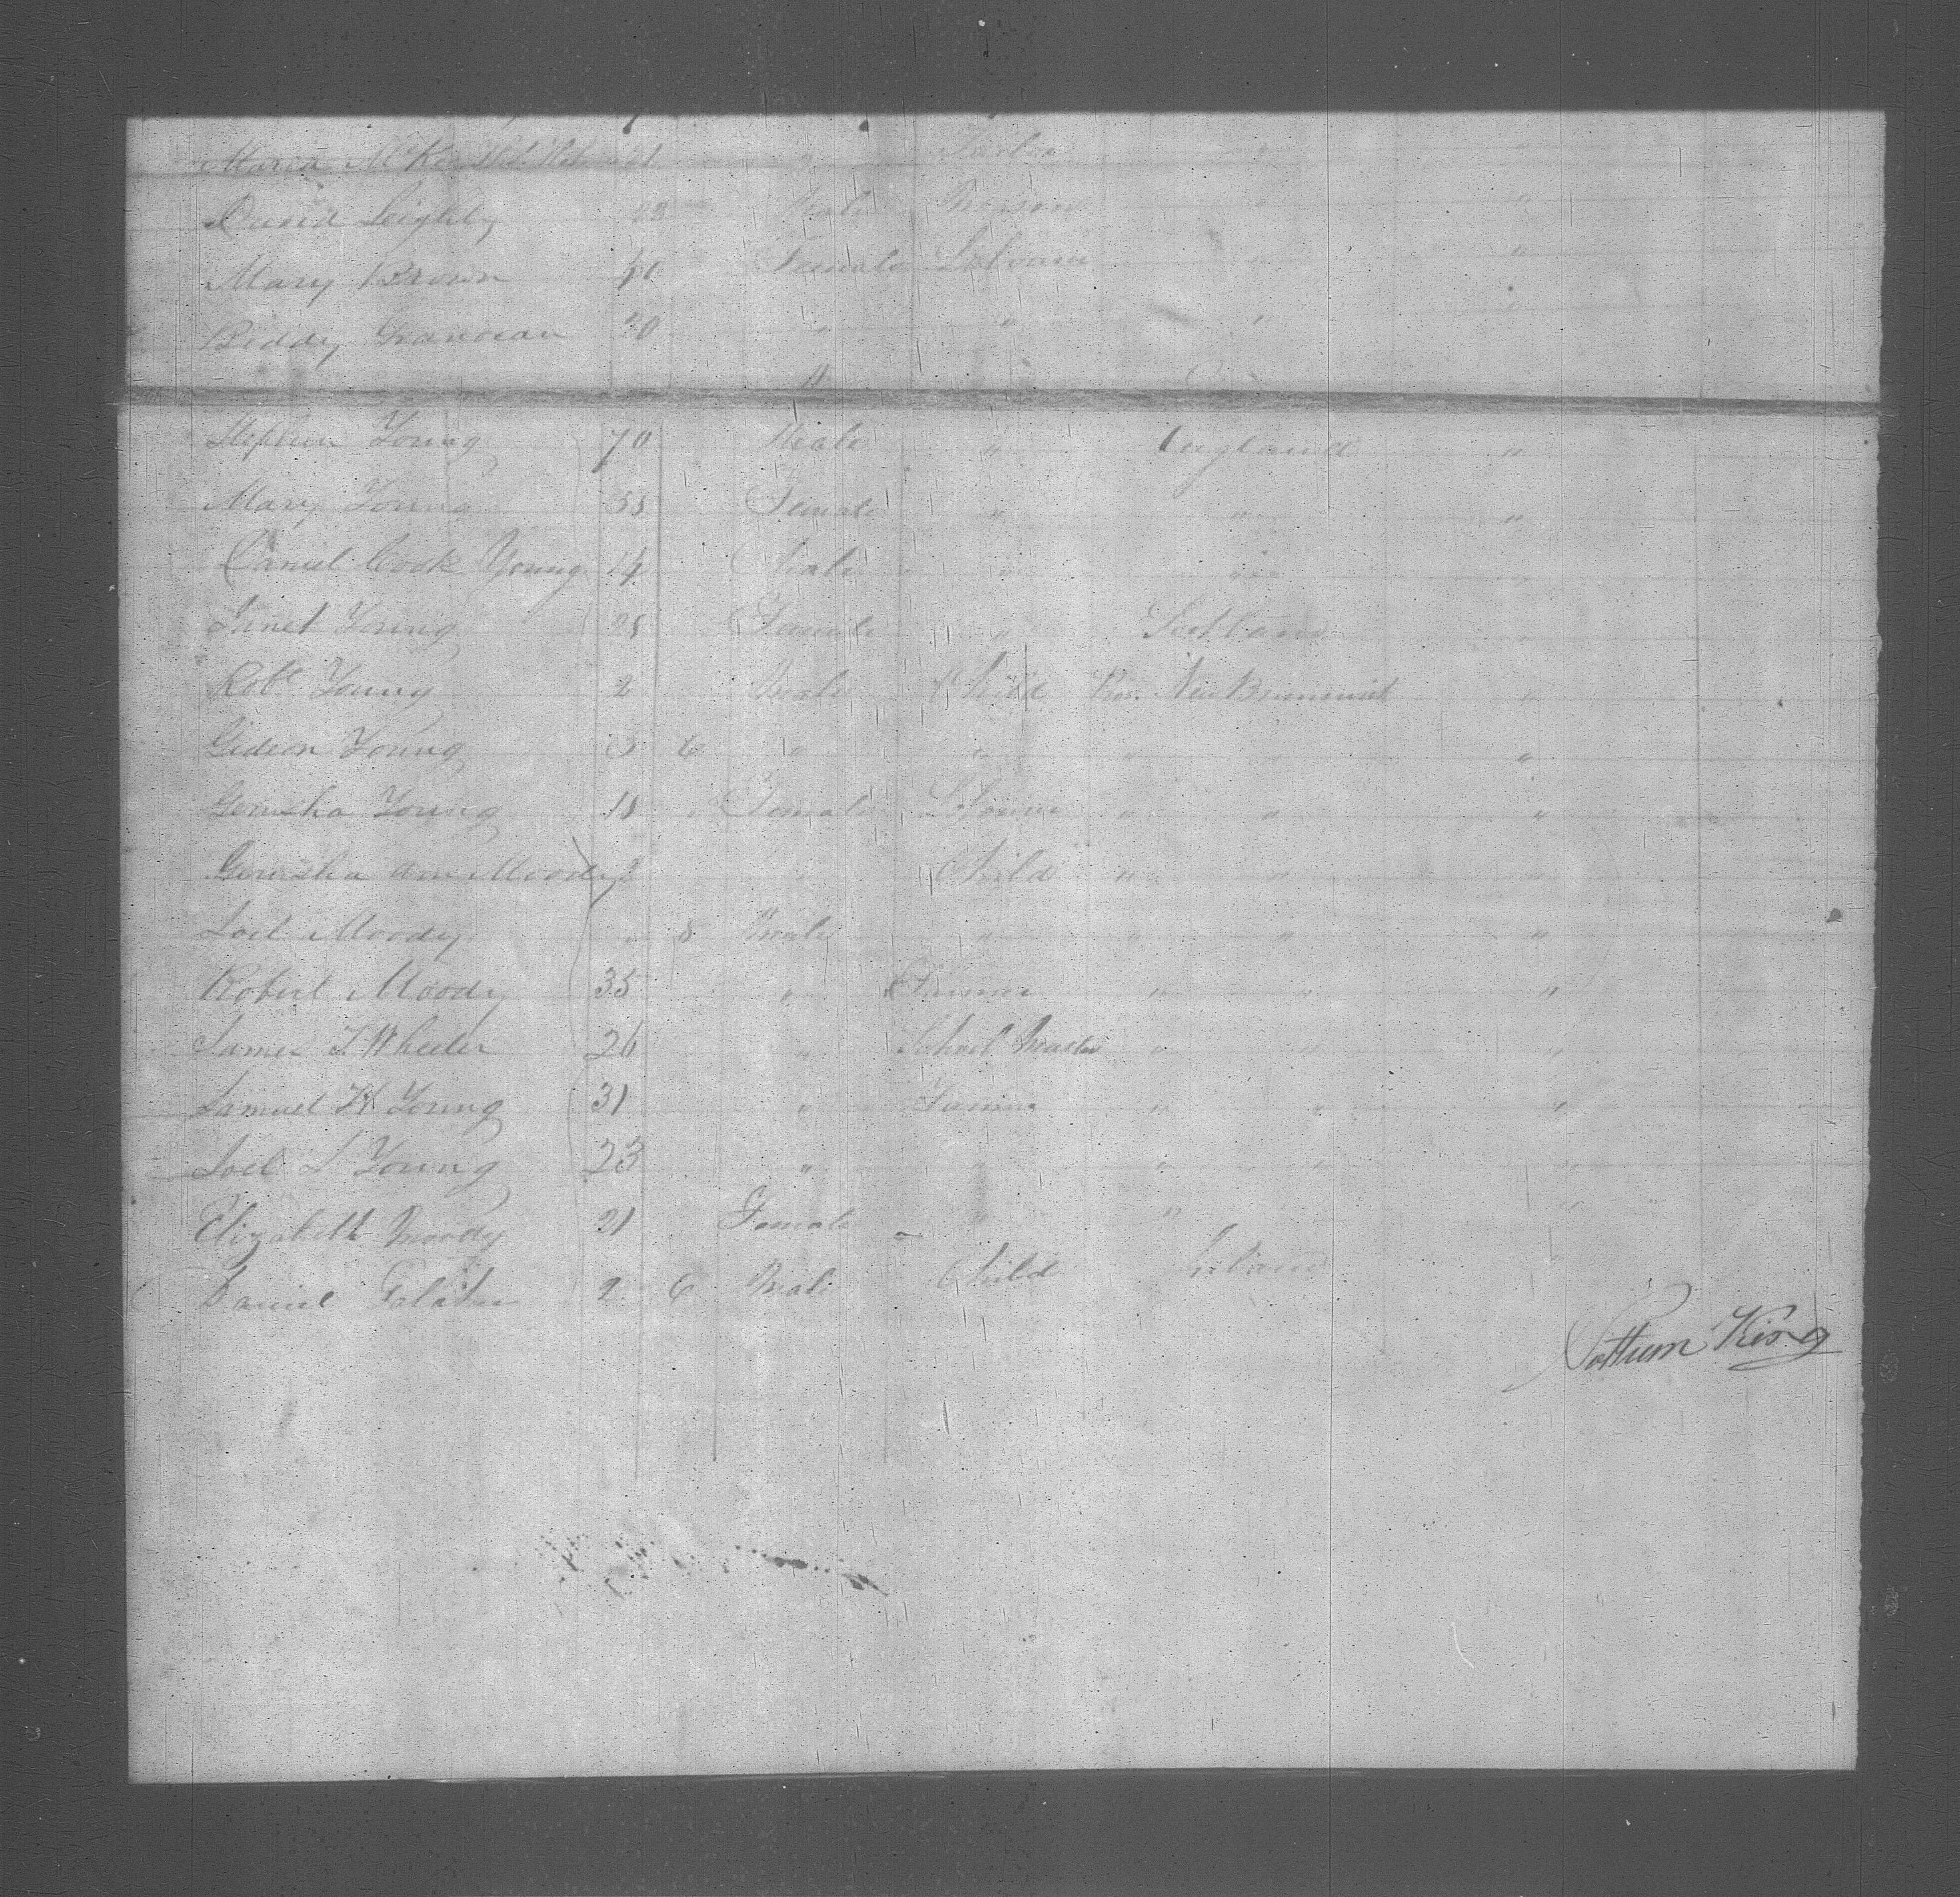 21 " Tailor " "
David Leighly 23 Male Mason " "
Mary Brown 40 Female Laborer " "
Biddy 20 " " " "
Stephen Young 70 Male " England "
Mary Young 58 Female " " "
Daniel Cook Young 14 Male " " "
Janet Young 28 Female " Scotland "
Robt Young 2 Male Child Prov. New Brunswick "
Gideon Young 3 6 " " " " "
Gerusha Young 18 Female Laborer " " "
Gerusha Ann Moody 2 " Child " " "
Joel Moody 8 Male " " " "
Robert Moody 35 " Farmer " " "
James T Wheeler 26 " School Master " " "
Samuel H Young 31 " Farmer " " "
Joel L Young 23 " " " " "
Elizabeth Moody 21 Female " " "
Daniel 2 6 Male Child Ireland "
King